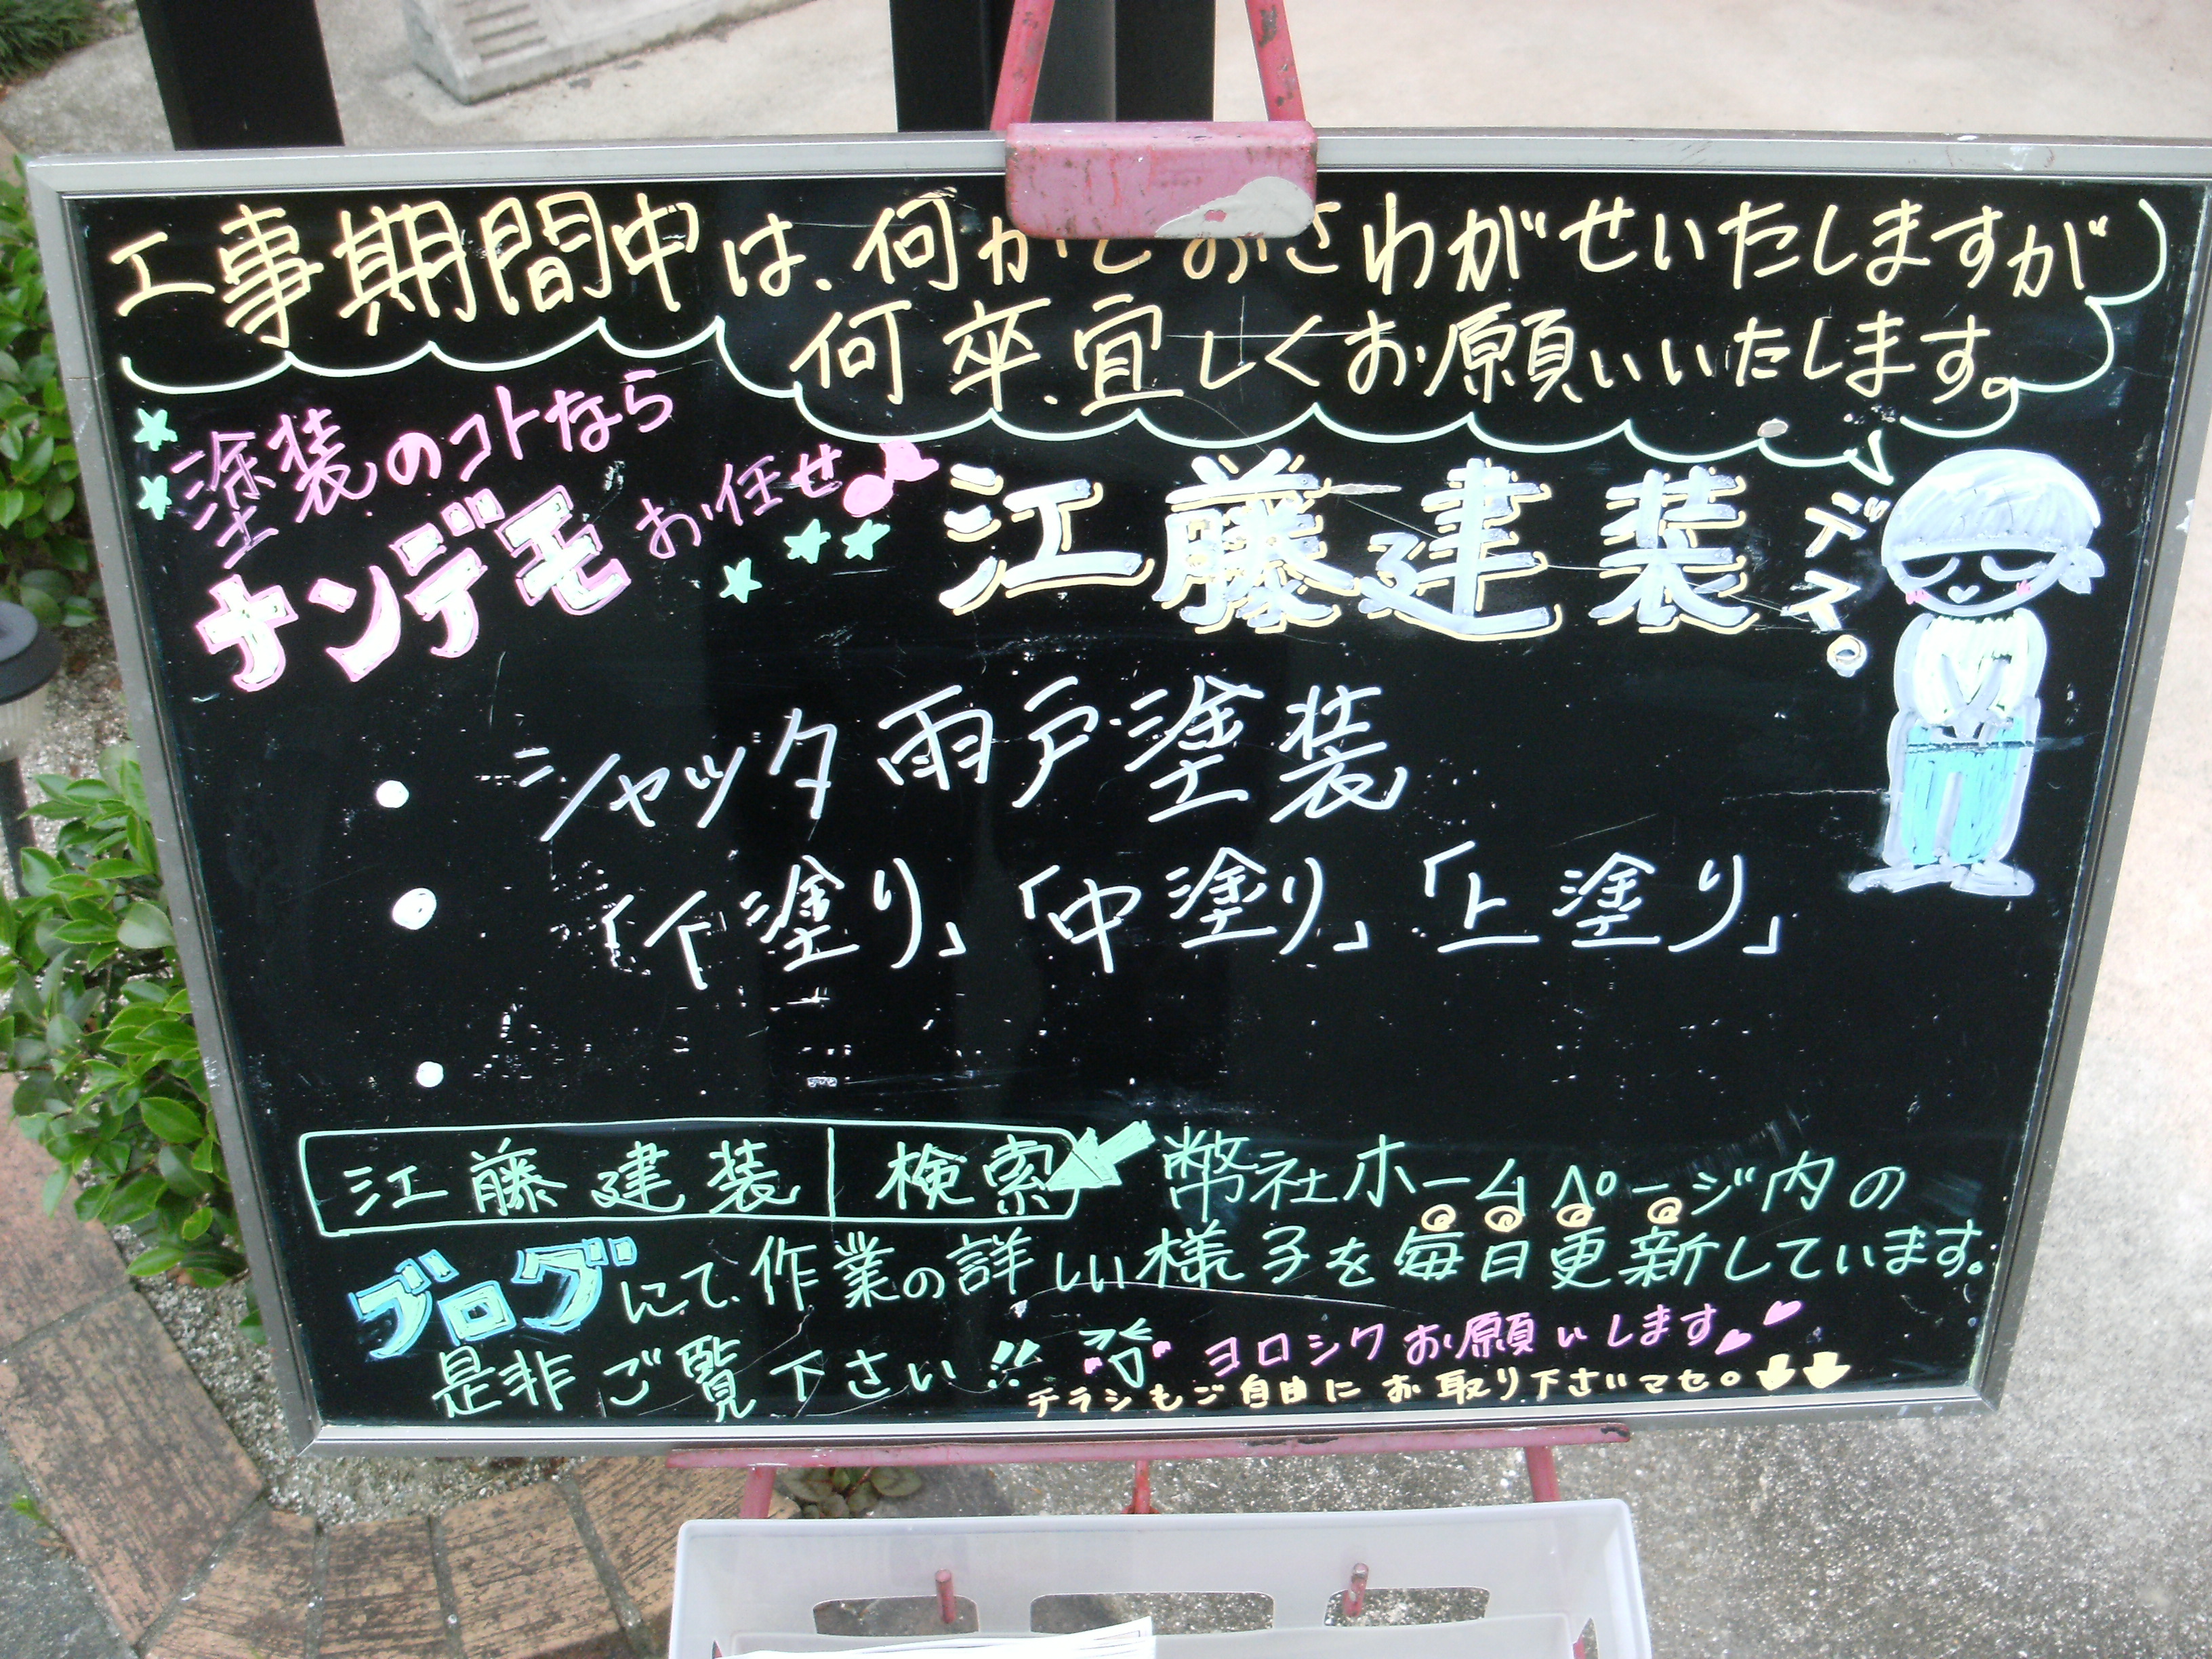 工事期間中は、何かとおさわがせいたしますが
何卒宜しくお願いいたします。
塗装のコトなら
ナンデモお任せ♪
江藤建装デス。
・シャッタ雨戸塗装
・「下塗り」「中塗り」「上塗り」
・
江藤建装|検索
弊社ホームページ内の
ブログにて、作業の詳しい様子を毎日更新しています。
是非ご覧下さい!!
ヨロシクお願いします
チラシもご自由にお取り下さいマセ。